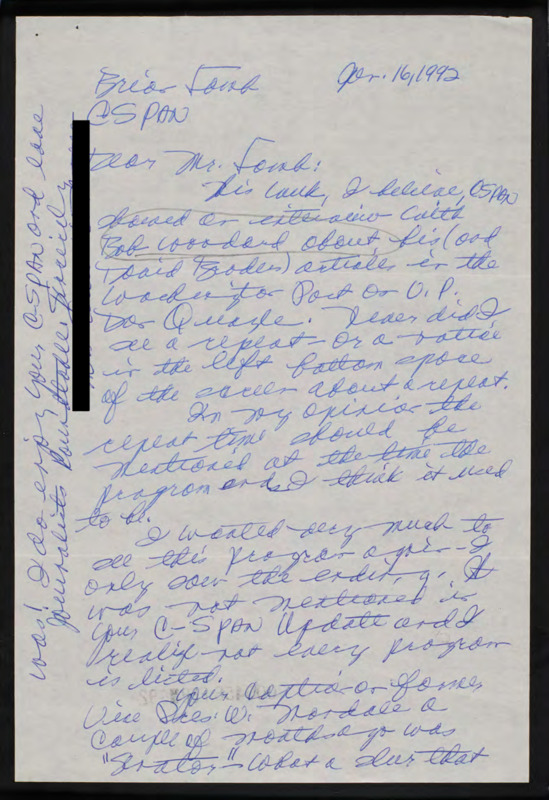 Apr. 16, 1992
Brian Lamb
CSPAN
Dear Mr. Lamb:
This week, I believe, CSPAN
showed an interview with
Bob Woodward about his (and
David Broder) articles in the
Washington Post on V.P.
Dan Quayle. Never did I
see a repeat or a notice
in the left bottom space
of the screen about a repeat.
In my opinion the
repeat time should be
mentioned at the time the
program ends. I think it used
to be.
I wanted very much to
see this program again - I
only saw the ending. It
was not mentioned in
your C-SPAN Update and I
realize not every program
is listed.
Your caption on former
Vice Pres. W. Mondale a
couple of months ago was
"Senator" - what a slur that
was! I do enjoy your CSPAN and love
Journalists Roundtable. Sincerely,